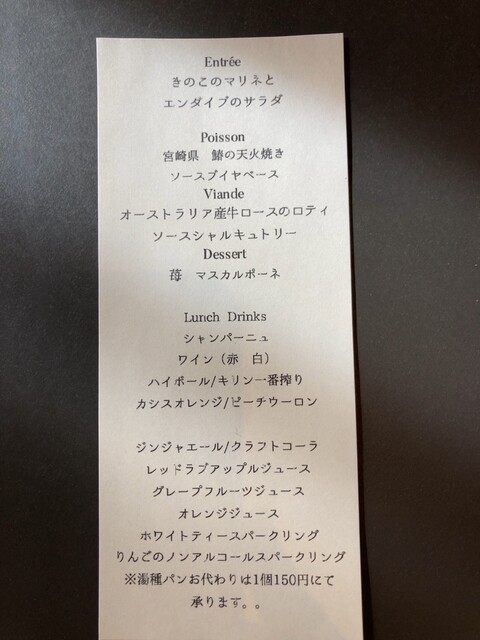 Entrée
きのこのマリネと
エンダイブのサラダ
Poisson
宮崎県　鰆の天火焼き
ソースブイヤベース
Viande
オーストラリア産牛ロースのロティ
ソースシャルキュトリー
Dessert
苺　マスカルポーネ
Lunch Drinks
シャンパーニュ
ワイン（赤　白）
ハイボール/キリン一番搾り
カシスオレンジ/ピーチウーロン
ジンジャエール/クラフトコーラ
レッドラブアップルジュース
グレープフルーツジュース
オレンジジュース
ホワイトティースパークリング
りんごのノンアルコールスパークリング
※湯種パンお代わりは1個150円にて
承ります。。